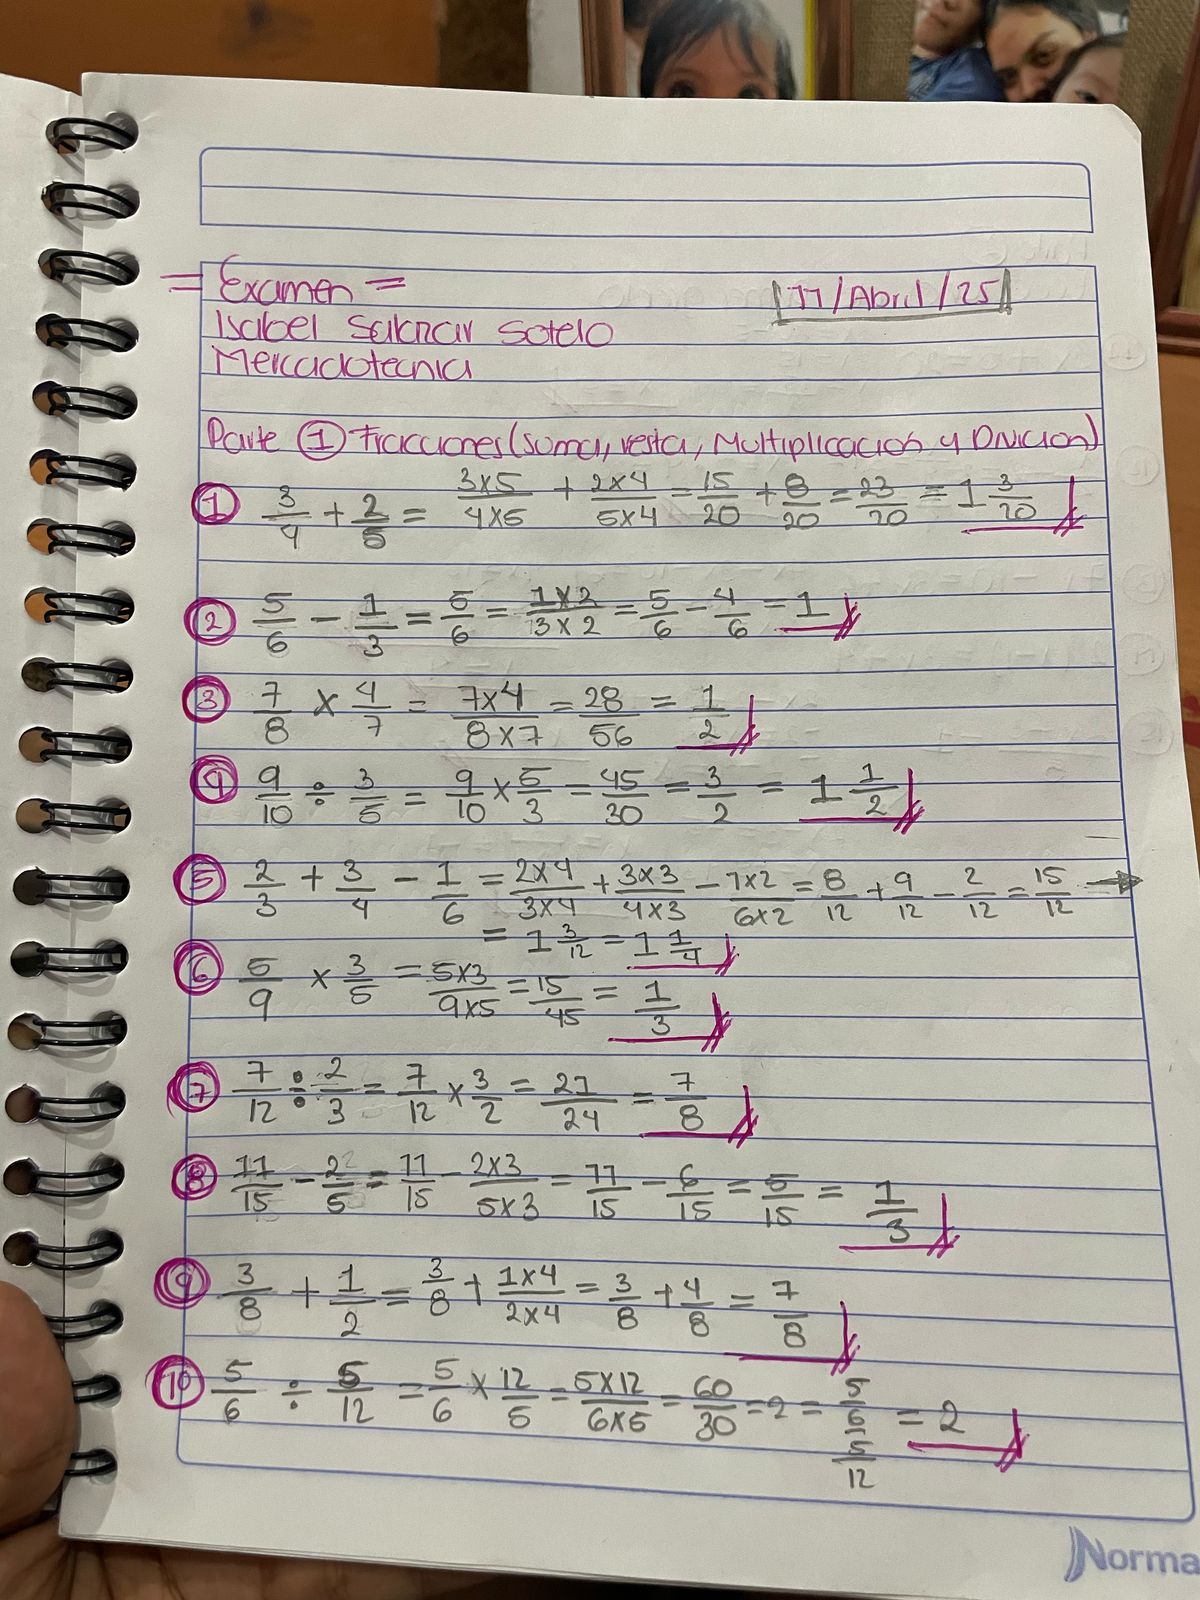 = Examen =
11/Abril/25
Isabel Salazar Sotelo
Mercadotecnia
Parte ① Fracciones (suma, resta, Multiplicación y División)
① 3/4 + 2/5 = 3x5/4x5 + 2x4/5x4 = 15/20 + 8/20 = 23/20 = 1 3/20
② 5/6 - 1/3 = 5/6 = 1x2/3x2 = 5/6 - 4/6 = 1
③ 7/8 x 4/7 = 7x4/8x7 = 28/56 = 1/2
④ 9/10 ÷ 3/5 = 9/10 x 5/3 = 45/30 = 3/2 = 1 1/2
⑤ 2/3 + 3/4 - 1/6 = 2x4/3x4 + 3x3/4x3 - 1x2/6x2 = 8/12 + 9/12 - 2/12 = 15/12 →
= 1 3/12 = 1 1/4
⑥ 5/9 x 3/5 = 5x3/9x5 = 15/45 = 1/3
⑦ 7/12 ÷ 2/3 = 7/12 x 3/2 = 21/24 = 7/8
⑧ 11/15 - 2/5 = 11/15 - 2x3/5x3 = 11/15 - 6/15 = 5/15 = 1/3
⑨ 3/8 + 1/2 = 3/8 + 1x4/2x4 = 3/8 + 4/8 = 7/8
⑩ 5/6 ÷ 5/12 = 5/6 x 12/5 = 5x12/6x5 = 60/30 = 2 = 5/6/5/12 = 2
Norma